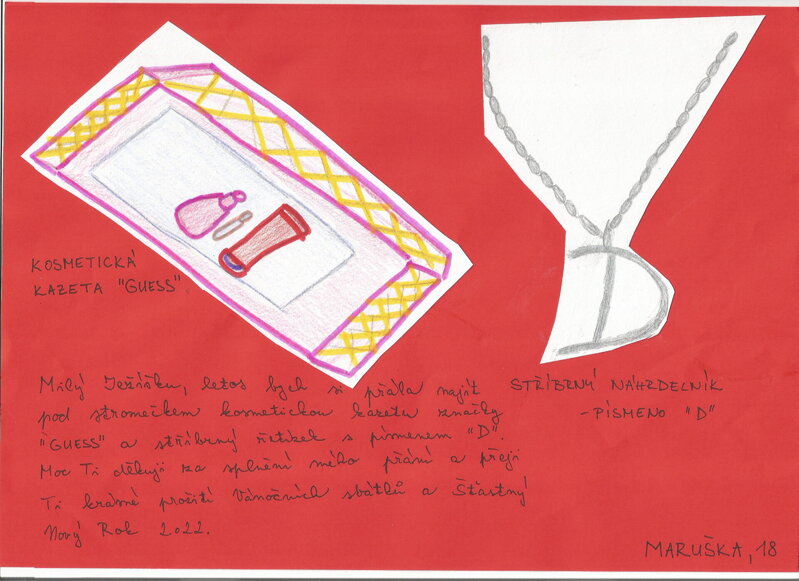 KOSMETICKÁ
KAZETA "GUESS"
STŘÍBRNÝ NÁHRDELNÍK
-PÍSMENO "D"
Milý Ježíšku, letos bych si přála najít
pod stromečkem kosmetickou kazetu značky
"GUESS" a stříbrný řetízek s písmenem "D".
Moc Ti děkuji za splnění mého přání a přeji
Ti krásné prožití Vánočních svátků a Šťastný
Nový Rok 2022.
MARUŠKA, 18